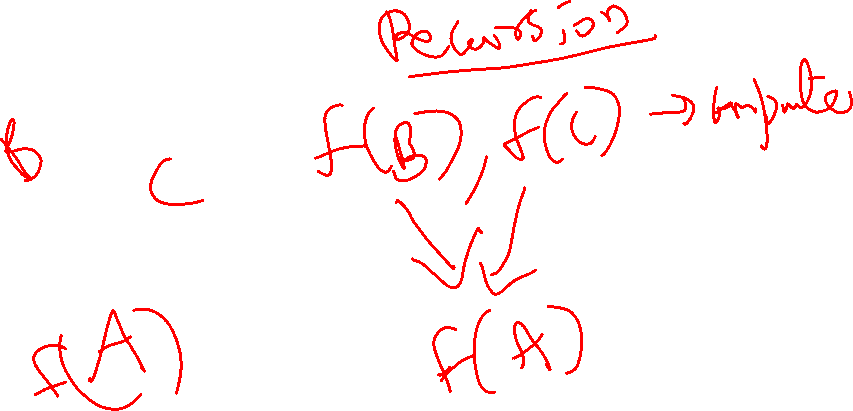 Recursion
B C f(B), f(C) → compute
f(A) f(A)